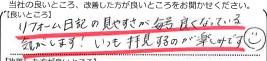 当社の良いところ、改善した方が良いところをお聞かせください。
【良いところ】
リフォーム日記の見やすさが毎号良くなっている
気がします!いつも拝見するのが楽しみです